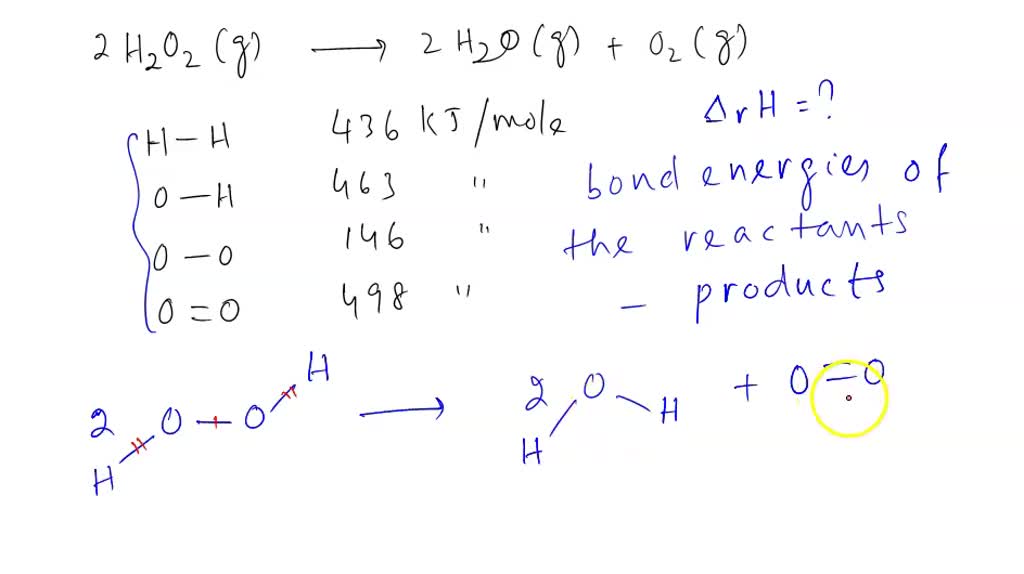 2 H2O2 (g) ⟶ 2 H2O (g) + O2 (g)
ΔrH = ?
H – H 436 KJ/mole
O – H 463 "
O – O 146 "
O = O 498 "
bond energies of
the reactants
– products
2 H – O – O – H ⟶ 2 H – O – H + O = O